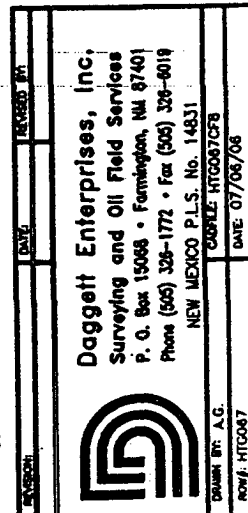 REVISION: DATE: REVISED BY:
Daggett Enterprises, Inc.
Surveying and Oil Field Services
P. O. Box 15068 • Farmington, NM 87401
Phone (505) 326-1772 • Fax (505) 326-6019
NEW MEXICO P.L.S. No. 14831
DRAWN BY: A.G. CADFILE: HTG067CF8
ROW#: HTGO67 DATE: 07/06/06